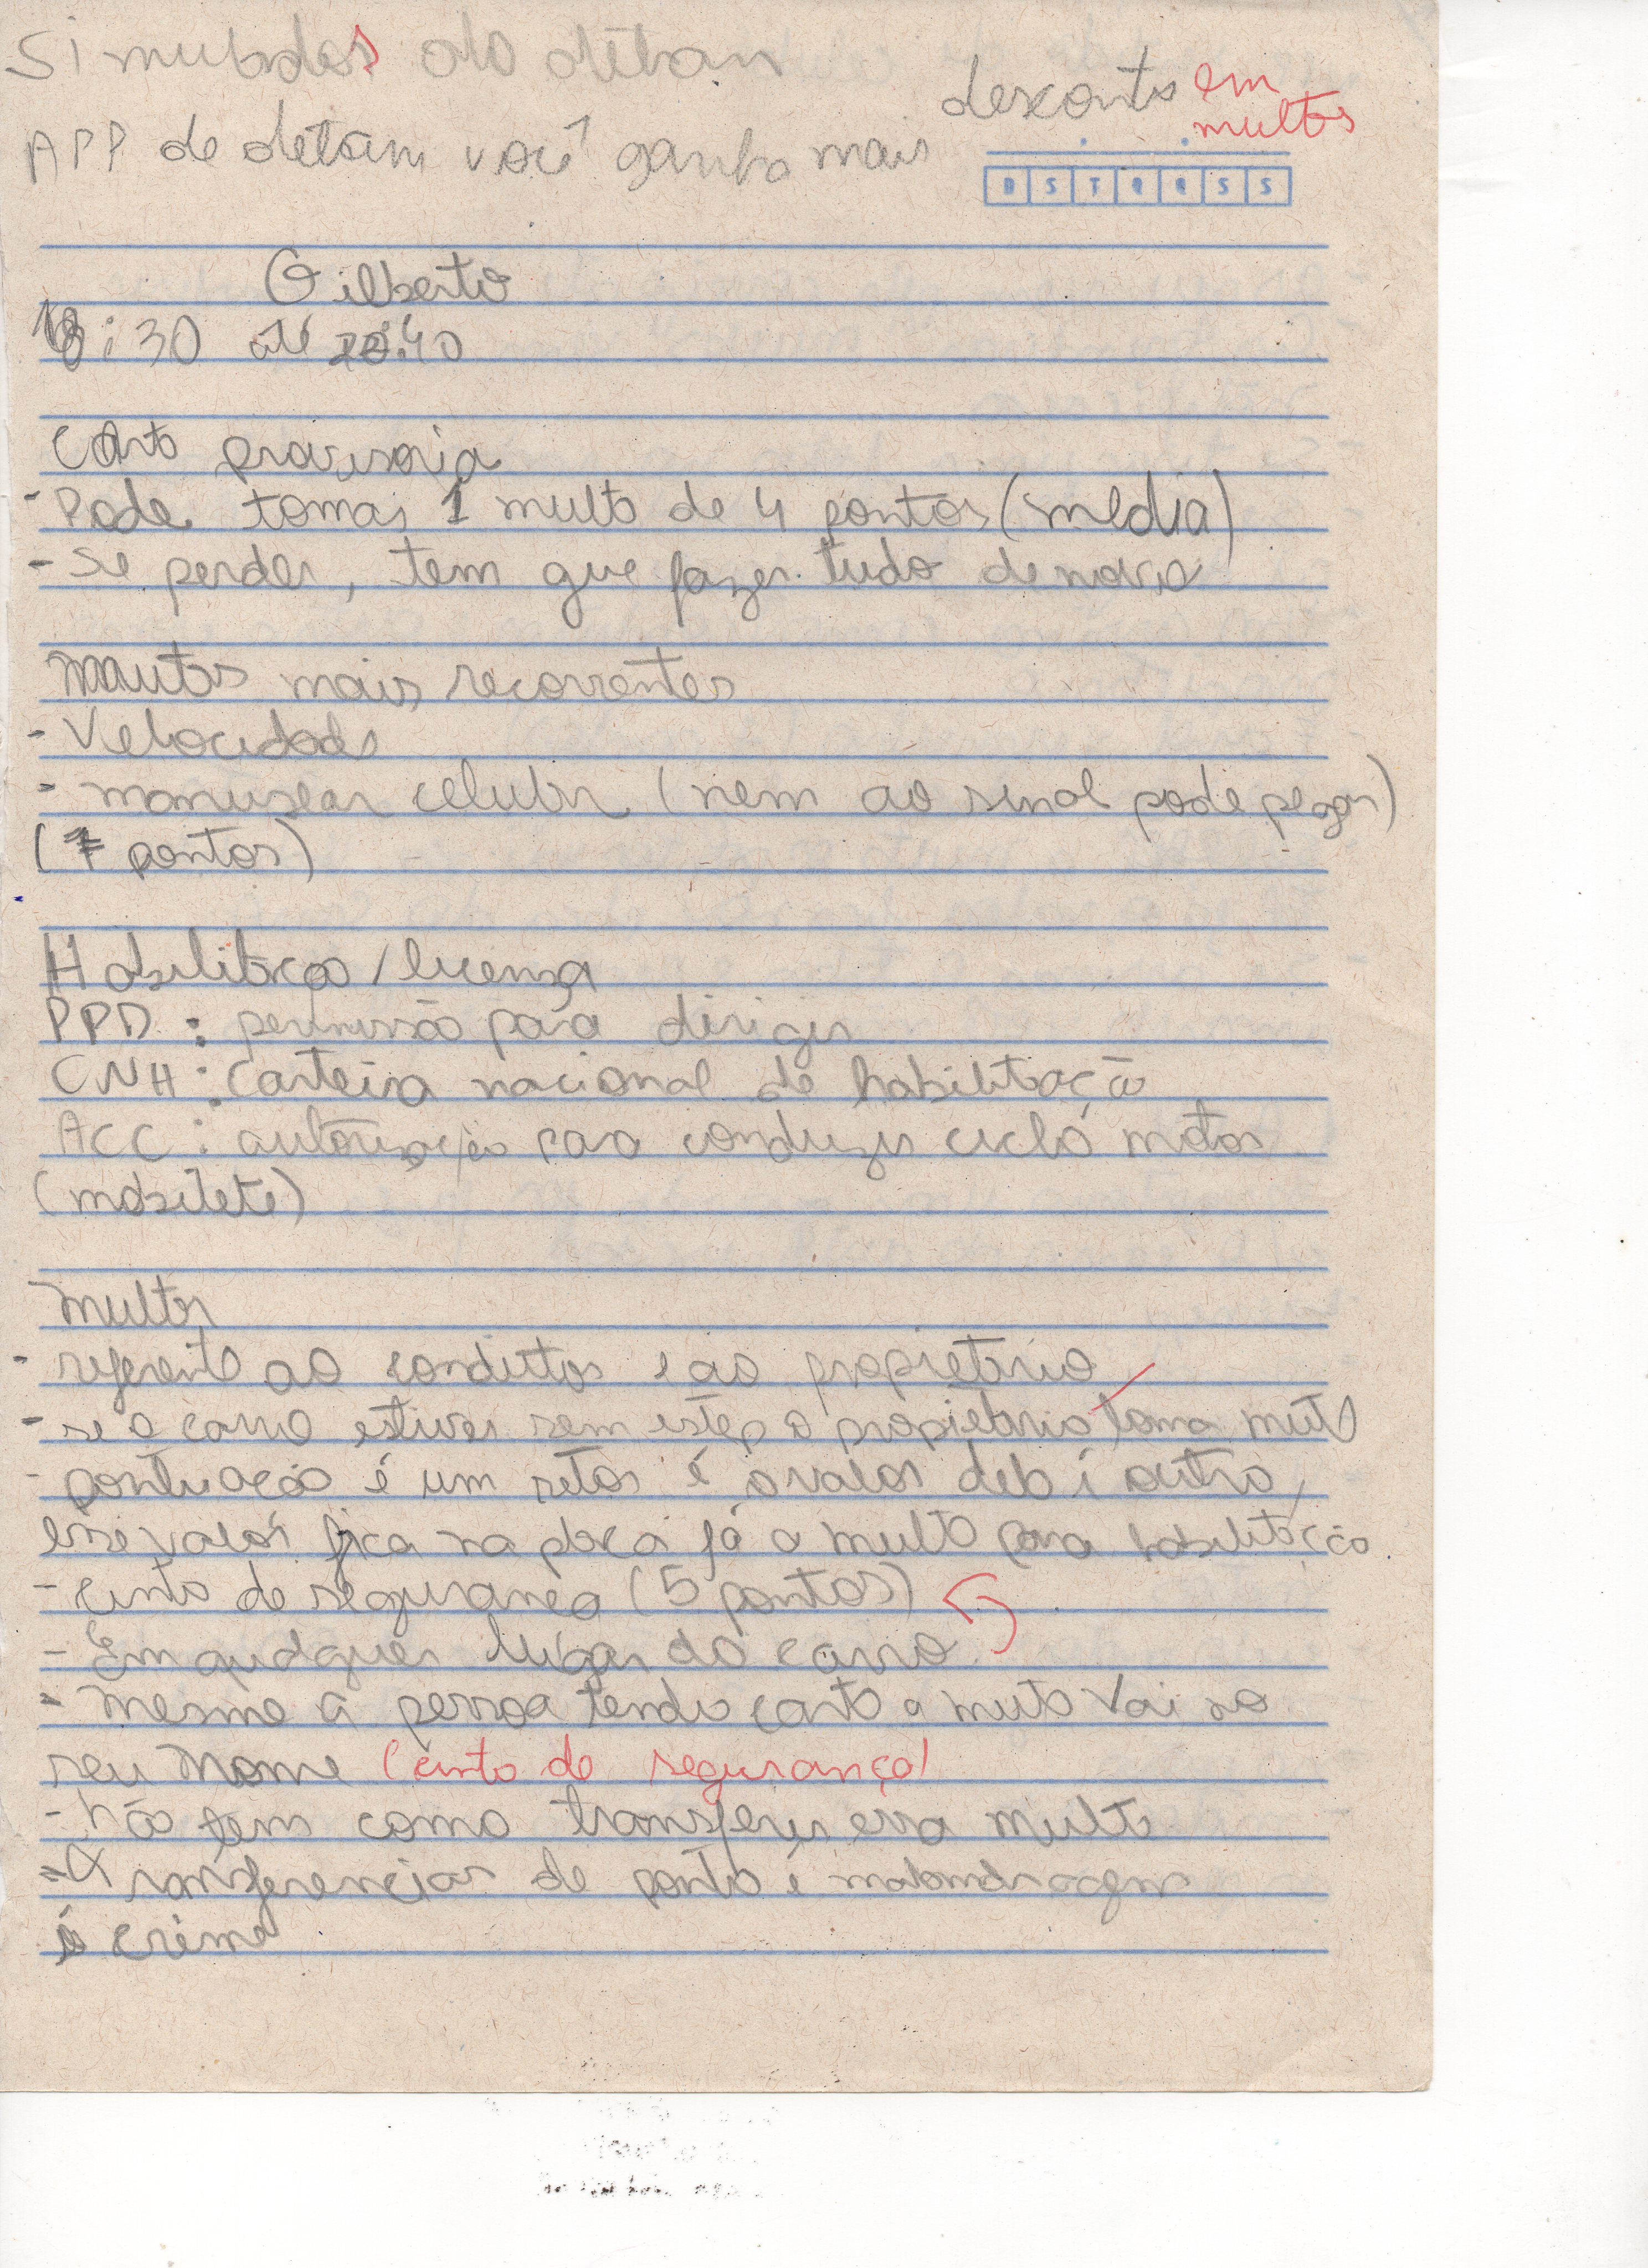 Simulados do detran
APP de detran você ganha mais desconto em multas
D S T Q Q S S
Gilberto
18:30 até 20:40
Carta provisoria
- Pode tomar 1 multa de 4 pontos (média)
- Se perder, tem que fazer tudo de novo
Mautas mais recorrentes
- Velocidade
- manusear celular (nem ao sinal pode pegar)
(7 pontos)
Habilitação / licença
PPD: permissão para dirigir
CNH: carteira nacional de habilitação
ACC: autorização para conduzir ciclo motor
(mobilete)
Multas
- referente ao condutor e ao proprietário
- se o carro estiver sem estep o propietario toma mult
- pontuação é um setor é o valor dela é outro,
esse valor fica na placa já a multa para habilitação
- cinto de segurança (5 pontos)
- Em qualquer lugar do carro
- mesmo a pessoa tendo carta a muta vai no
seu nome (cinto de segurança)
- não tem como transferir essa multa
- Transferencias de ponto é malandragem
é crime